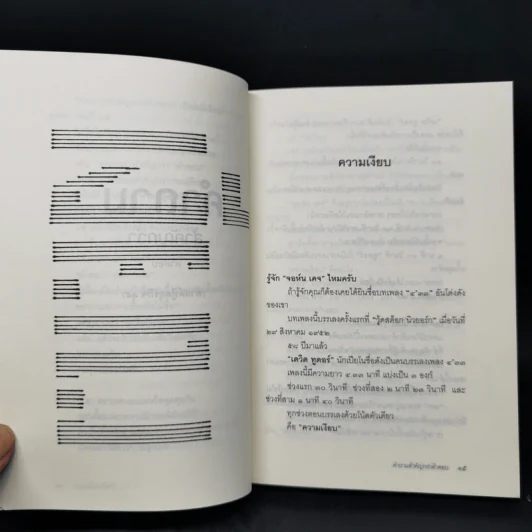 ความเงียบ
รู้จัก "จอห์น เคจ" ไหมครับ
ถ้ารู้จักคุณก็ต้องเคยได้ยินชื่อบทเพลง "๔'๓๓" อันโด่งดัง
ของเขา
บทเพลงนี้บรรเลงครั้งแรกที่ "วู้ดสต็อก นิวยอร์ก" เมื่อวันที่
๒๙ สิงหาคม ๑๙๕๒
ปีมาแล้ว
"เดวิด ทูดอร์" นักเปียโนชื่อดังเป็นคนบรรเลงเพลง ๔'๓๓
เพลงนี้มีความยาว ๔.๓๓ นาที แบ่งเป็น ๓ องก์
ช่วงแรก ๓๐ วินาที ช่วงที่สอง ๒ นาที ๒๓ วินาที และ
ช่วงที่สาม ๑ นาที ๔๐ วินาที
ทุกช่วงตอนบรรเลงด้วยโน้ตตัวเดียว
คือ "ความเงียบ"